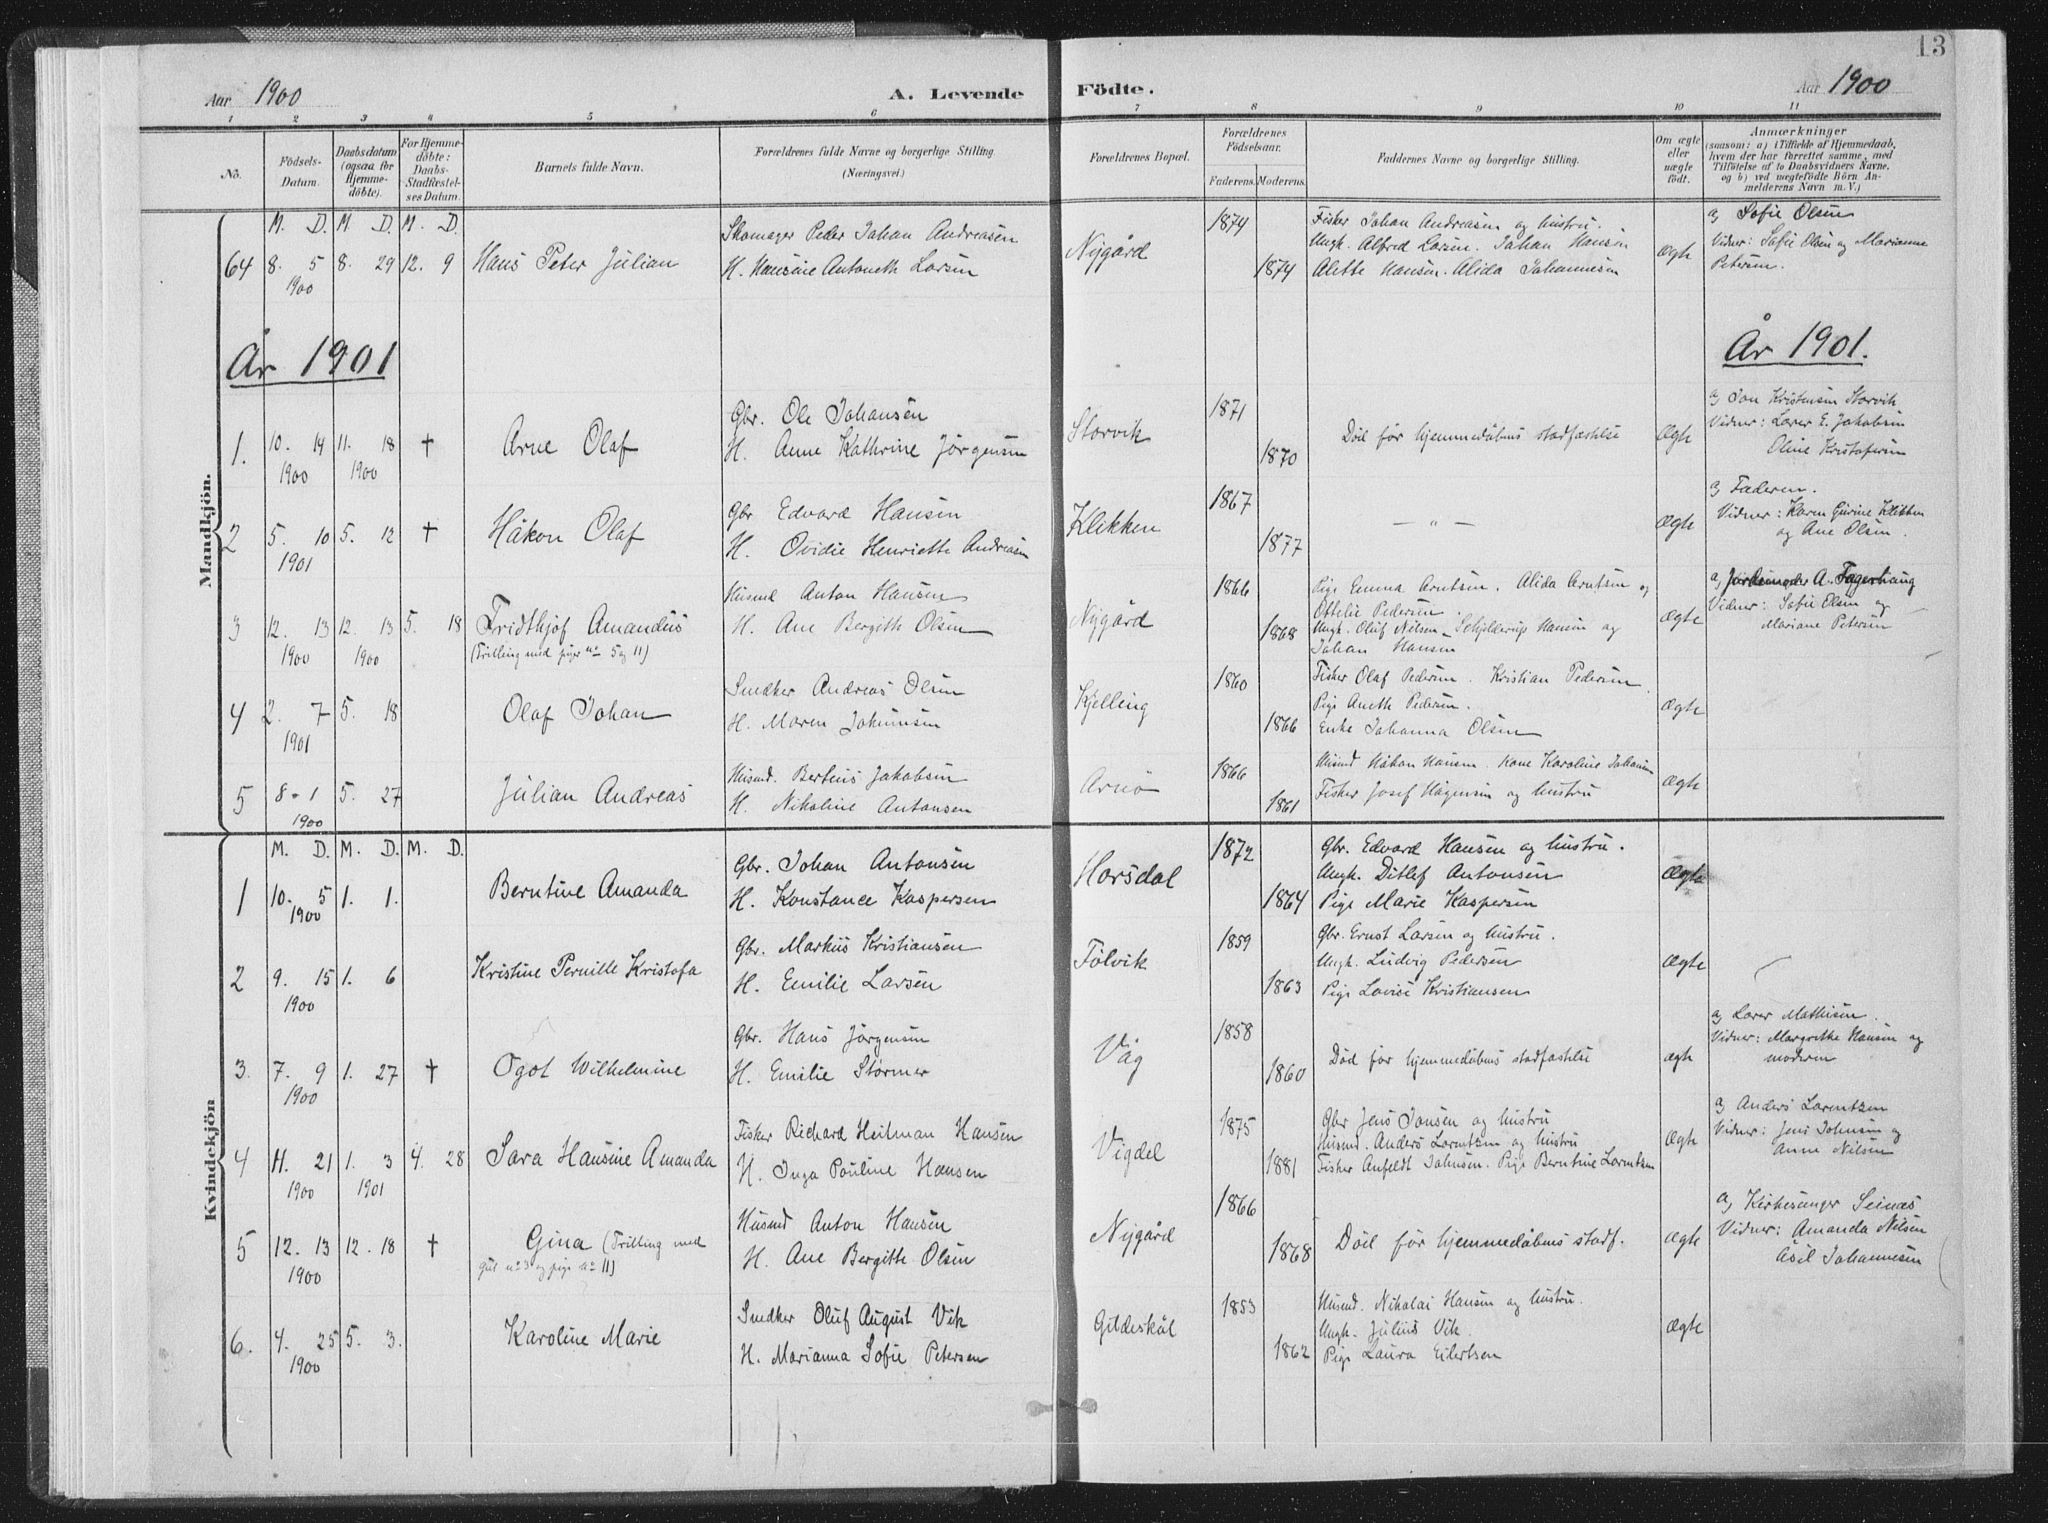 13
Aar 1900
A. Levende Födte.
Aar 1900
1 2 3 4 5 6 7 8 9 10 11
No.
Födsels-Datum.
Daabsdatum (ogsaa for Hjemmedöbte).
For Hjemmedöbte: Daabs-Stadfæstelses Datum.
Barnets fulde Navn.
Forældrenes fulde Navne og borgerlige Stilling. (Næringsvei.)
Forældrenes Bopæl.
Forældrenes Födselsaar.
Faderens. Moderens.
Faddernes Navne og borgerlige Stilling.
Om ægte eller uægte födt.
Anmærkninger
(saasom: a) i Tilfælde af Hjemmedaab, hvem der har forrettet samme, med Tilföielse af to Daabsvidners Navne, og b) ved uægtefödte Börn Anmelderens Navn m. V.)
Mandkjön.
M. D. M. D. M. D.
64 8. 5 1900 8. 29 12. 9 Hans Peter Julian
Skomager Peder Johan Andreasen
H. Hansine Antoneth Larsen
Nygård 1874 1874
Fisker Johan Andreasen og hustru.
Ungk. Alfred Larsen. Johan Hansen
Alette Hansen. Alida Johannesen
ægte
a, Sofie Olsen
Vidner: Sofie Olsen og Marianne
Petersen.
År 1901
År 1901.
1. 10. 14 1900 11. 18 1900 † Arne Olaf
Gbr. Ole Johansen
H. Anne Kathrine Jørgensen
Storvik 1871 1870
Død før hjemmedåbens stadfæstelse
Ægte
a, Jon Kristensen Storvik
Vidner: Lærer E. Jakobsen
Oline Kristofersen
2 5. 10 1901 5. 12 † Håkon Olaf
Gbr Edvard Hansen
H. Ovidie Henriette Andreasen
Klikken 1867 1877
— " —
Ægte
a, Faderen.
Vidner: Karen Gurine Klikken
og Ane Olsen.
3 12. 13 1900 12. 13 1900 5. 18 Fridthjof Amandus
(Trilling med piger no 5 og 11)
Husmd Anton Hansen
H. Ane Bergith Olsen
Nygård 1866 1868
Pige Emma Arntsen. Alida Arntsen og
Ottelie Pedersen.
Ungk. Oluf Nilsen - Schjelderup Hansen og
Johan Hansen
Ægte
a, Jordemoder A. Fagerhaug
Vidner: Sofie Olsen og
Mariane Petersen
4 2. 7 1901 5. 18 Olaf Johan
Snedker Andreas Olsen
H. Maren Johannsen
Kjelling 1860 1866
Fisker Olaf Pedersen. Kristian Pedersen.
Pige Aneth Pedersen.
Enke Johanna Olsen
Ægte
5 8 - 1 1900 5. 27 Julian Andreas
Husmd. Bertius Jakobsen
H. Nikoline Antonsen
Arnø 1866 1861
Husmd Håkon Hansen. Kone Karoline Johansen
Fisker Josef Hågensen og hustru
Ægte
Kvindekjön
M. D. M. D. M. D.
1 10. 5 1900 1. 1. Berntine Amanda
Gbr. Johan Antonsen
H. Konstance Kaspersen
Horsdal 1872 1864
Gbr. Edvard Hansen og hustru.
Ungk. Ditlef Antonsen
Pige Marie Kaspersen
Ægte
2 9. 15 1900 1. 6 Kristine Pernille Kristofa
Gbr. Markus Kristiansen
H. Emilie Larsen
Følvik 1859 1863
Gbr. Ernst Larsen og hustru.
Ungk. Ludvig Pedersen
Pige Lovise Kristiansen
Ægte
3. 7. 9 1900 1. 27 † Ågot Wilhelmine
Gbr. Hans Jørgensen
H. Emilie Størmer
Våg 1858 1860
Død før hjemmedåbens stadfæstelse
ægte
a, Lærer Mathisen.
Vidner: Margrethe Hansen og
moderen
4 11. 21 1900 1. 3 1901 4. 28 Sara Hansine Amanda
Fisker Richard Heitman Hansen
H. Inga Pauline Hansen
Vigdel 1875 1881
Gbr Jens Jonsen og hustru
Husmd. Anders Lorentzen og hustru
Fisker Anfeldt Johnsen. Pige Berntine Lorentzen
Ægte
a, Anders Lorentzen
Vidner: Jens Johnsen og
Anne Nilsen
5 12. 13 1900 12. 18 † Gina (Trilling med
gut no 3 og pige no 11)
Husmd Anton Hansen
H. Ane Bergitte Olsen
Nygård 1866 1868
Død før hjemmedåbens stadf.
Ægte
a, Kirkesanger Seines
Vidner: Amanda Nilsen
Åsel Johannesen
6. 4. 25 1900 5. 3. Karoline Marie
Snedker Oluf August Vik
H. Marianna Sofie Petersen
Gildeskål 1853 1862
Husmd. Nikolai Hansen og hustru.
Ungk. Julius Vik.
Pige Laura Eilertsen
Ægte